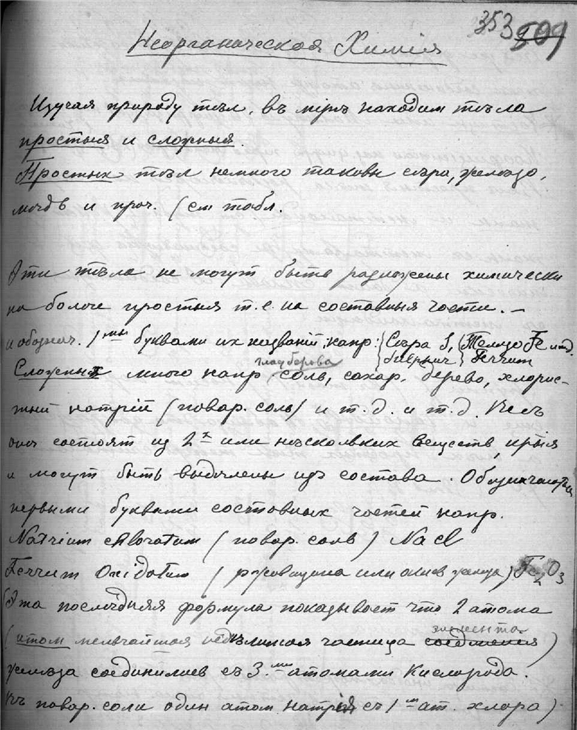 353 509
Неорганическая Химія
Изучая природу тѣл, въ мірѣ находим тѣла
простыя и сложныя.
Простых тѣл немного таковы сѣра, желѣзо,
и проч. (см табл.
Эти тѣла не могут быть разложены химически
на более простыя т.е. на составныя части. —
и обознач. 1ми буквами их названій напр: Сѣра S, Желѣзо Fe итд.
Ferrum
глауберова
Сложных много напр соль, сахар, дерево, хлорис-
тый натрій (повар. соль) и т.д. и т.д. Все
они состоят из 2х или нѣскольких веществ, крыя
и могут быть выдѣлены из состава. Обозначаются
первыми буквами составных частей напр.
Natrium Chloratum (повар. соль) NaCl
Ferrum Oxidatum (ржавчина или окись желѣза) Fe2O3
Эта послѣдняя формула показывает что 2 атома
элемента
(атом мельчайшая недѣлимая частица соединения)
желѣза соединились съ 3.мя атомами Кислорода.
Въ повар. соли один атом натрія съ 1м ат. хлора)